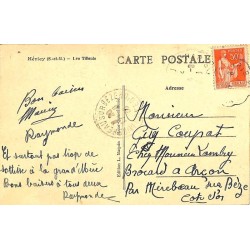 Héricy (S-et-M.) - Les Tilleuls
CARTE POSTALE
Adresse
Bon baiser
Mauricy
Raymonde
Et surtout pas trop de
sottise à la grand'Mère
Bons baisers à tous deux
Raymonde
Monsieur
Guy Couprat
Chez Monsieur
Brocard à Arçon
Par Mirebeau sur Bèze
Côte d'Or